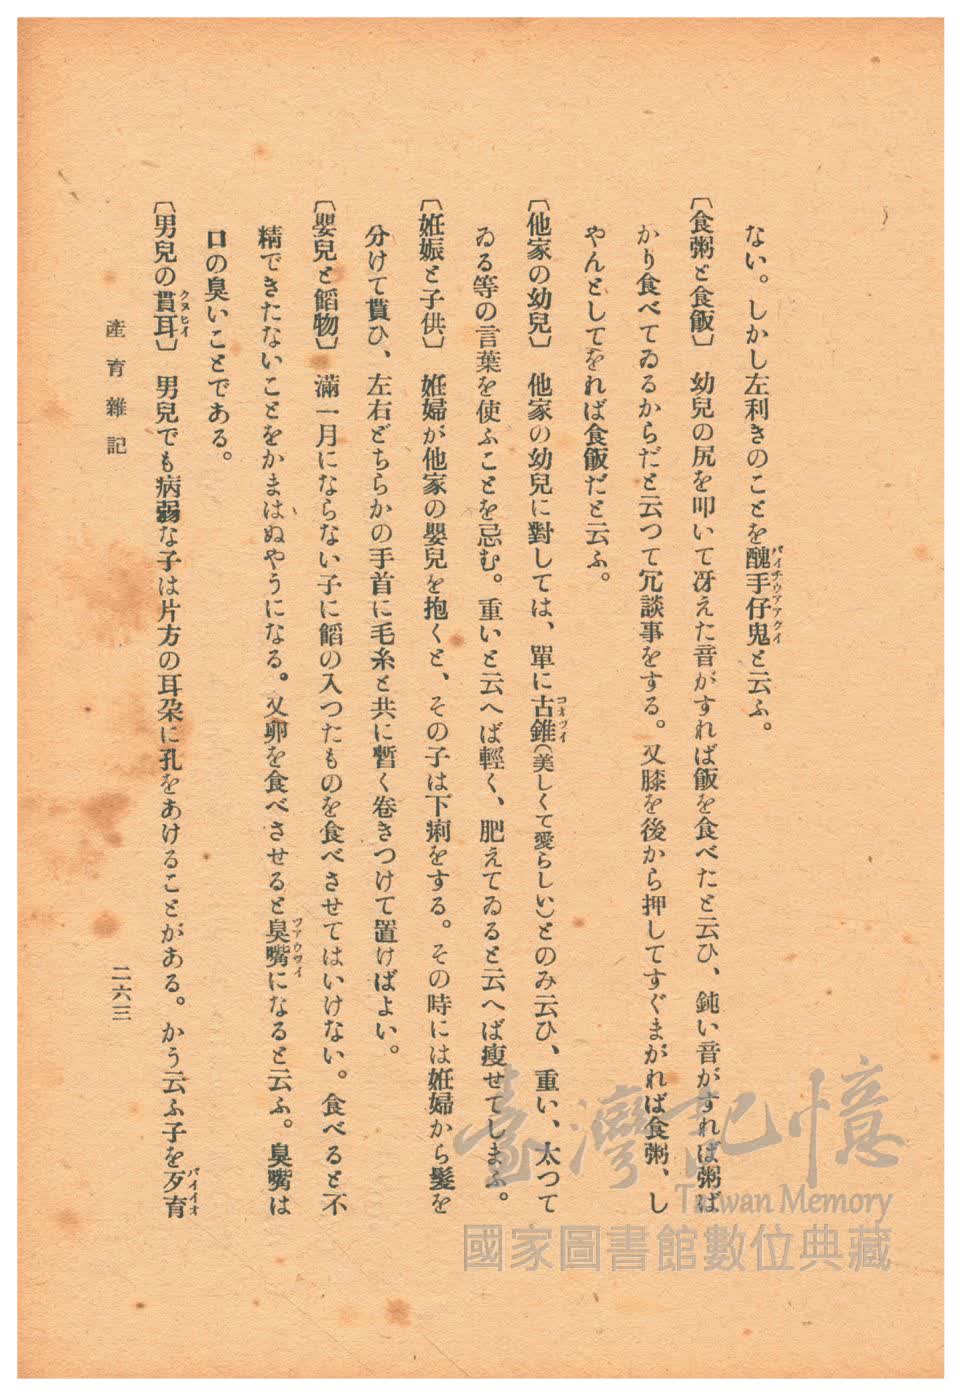 ない。しかし左利きのことを醜手仔鬼と云ふ。
パイチウアアクイ
〔食粥と食飯〕　幼兒の尻を叩いて冴えた音がすれば飯を食べたと云ひ、鈍い音がすれば粥ば
かり食べてゐるからだと云つて冗談事をする。又膝を後から押してすぐまがれば食粥、し
やんとしてをれば食飯だと云ふ。
〔他家の幼兒〕　他家の幼兒に對しては、單に古錐(美しくて愛らしい)とのみ云ひ、重い、太つて
コオツイ
ゐる等の言葉を使ふことを忌む。重いと云へば輕く、肥えてゐると云へば瘦せてしまふ。
〔姙娠と子供〕　姙婦が他家の嬰兒を抱くと、その子は下痢をする。その時には姙婦から髮を
分けて貰ひ、左右どちらかの手首に毛糸と共に暫く卷きつけて置けばよい。
〔嬰兒と餡物〕　滿一月にならない子に餡の入つたものを食べさせてはいけない。食べると不
精できたないことをかまはぬやうになる。又卵を食べさせると臭嘴になると云ふ。臭嘴は
ツアウツイ
口の臭いことである。
〔男兒の貫耳〕　男兒でも病弱な子は片方の耳朶に孔をあけることがある。かう云ふ子を歹育
クヌヒイ
パイイオ
產育雜記
二六三
臺灣記憶
Taiwan Memory
國家圖書館數位典藏